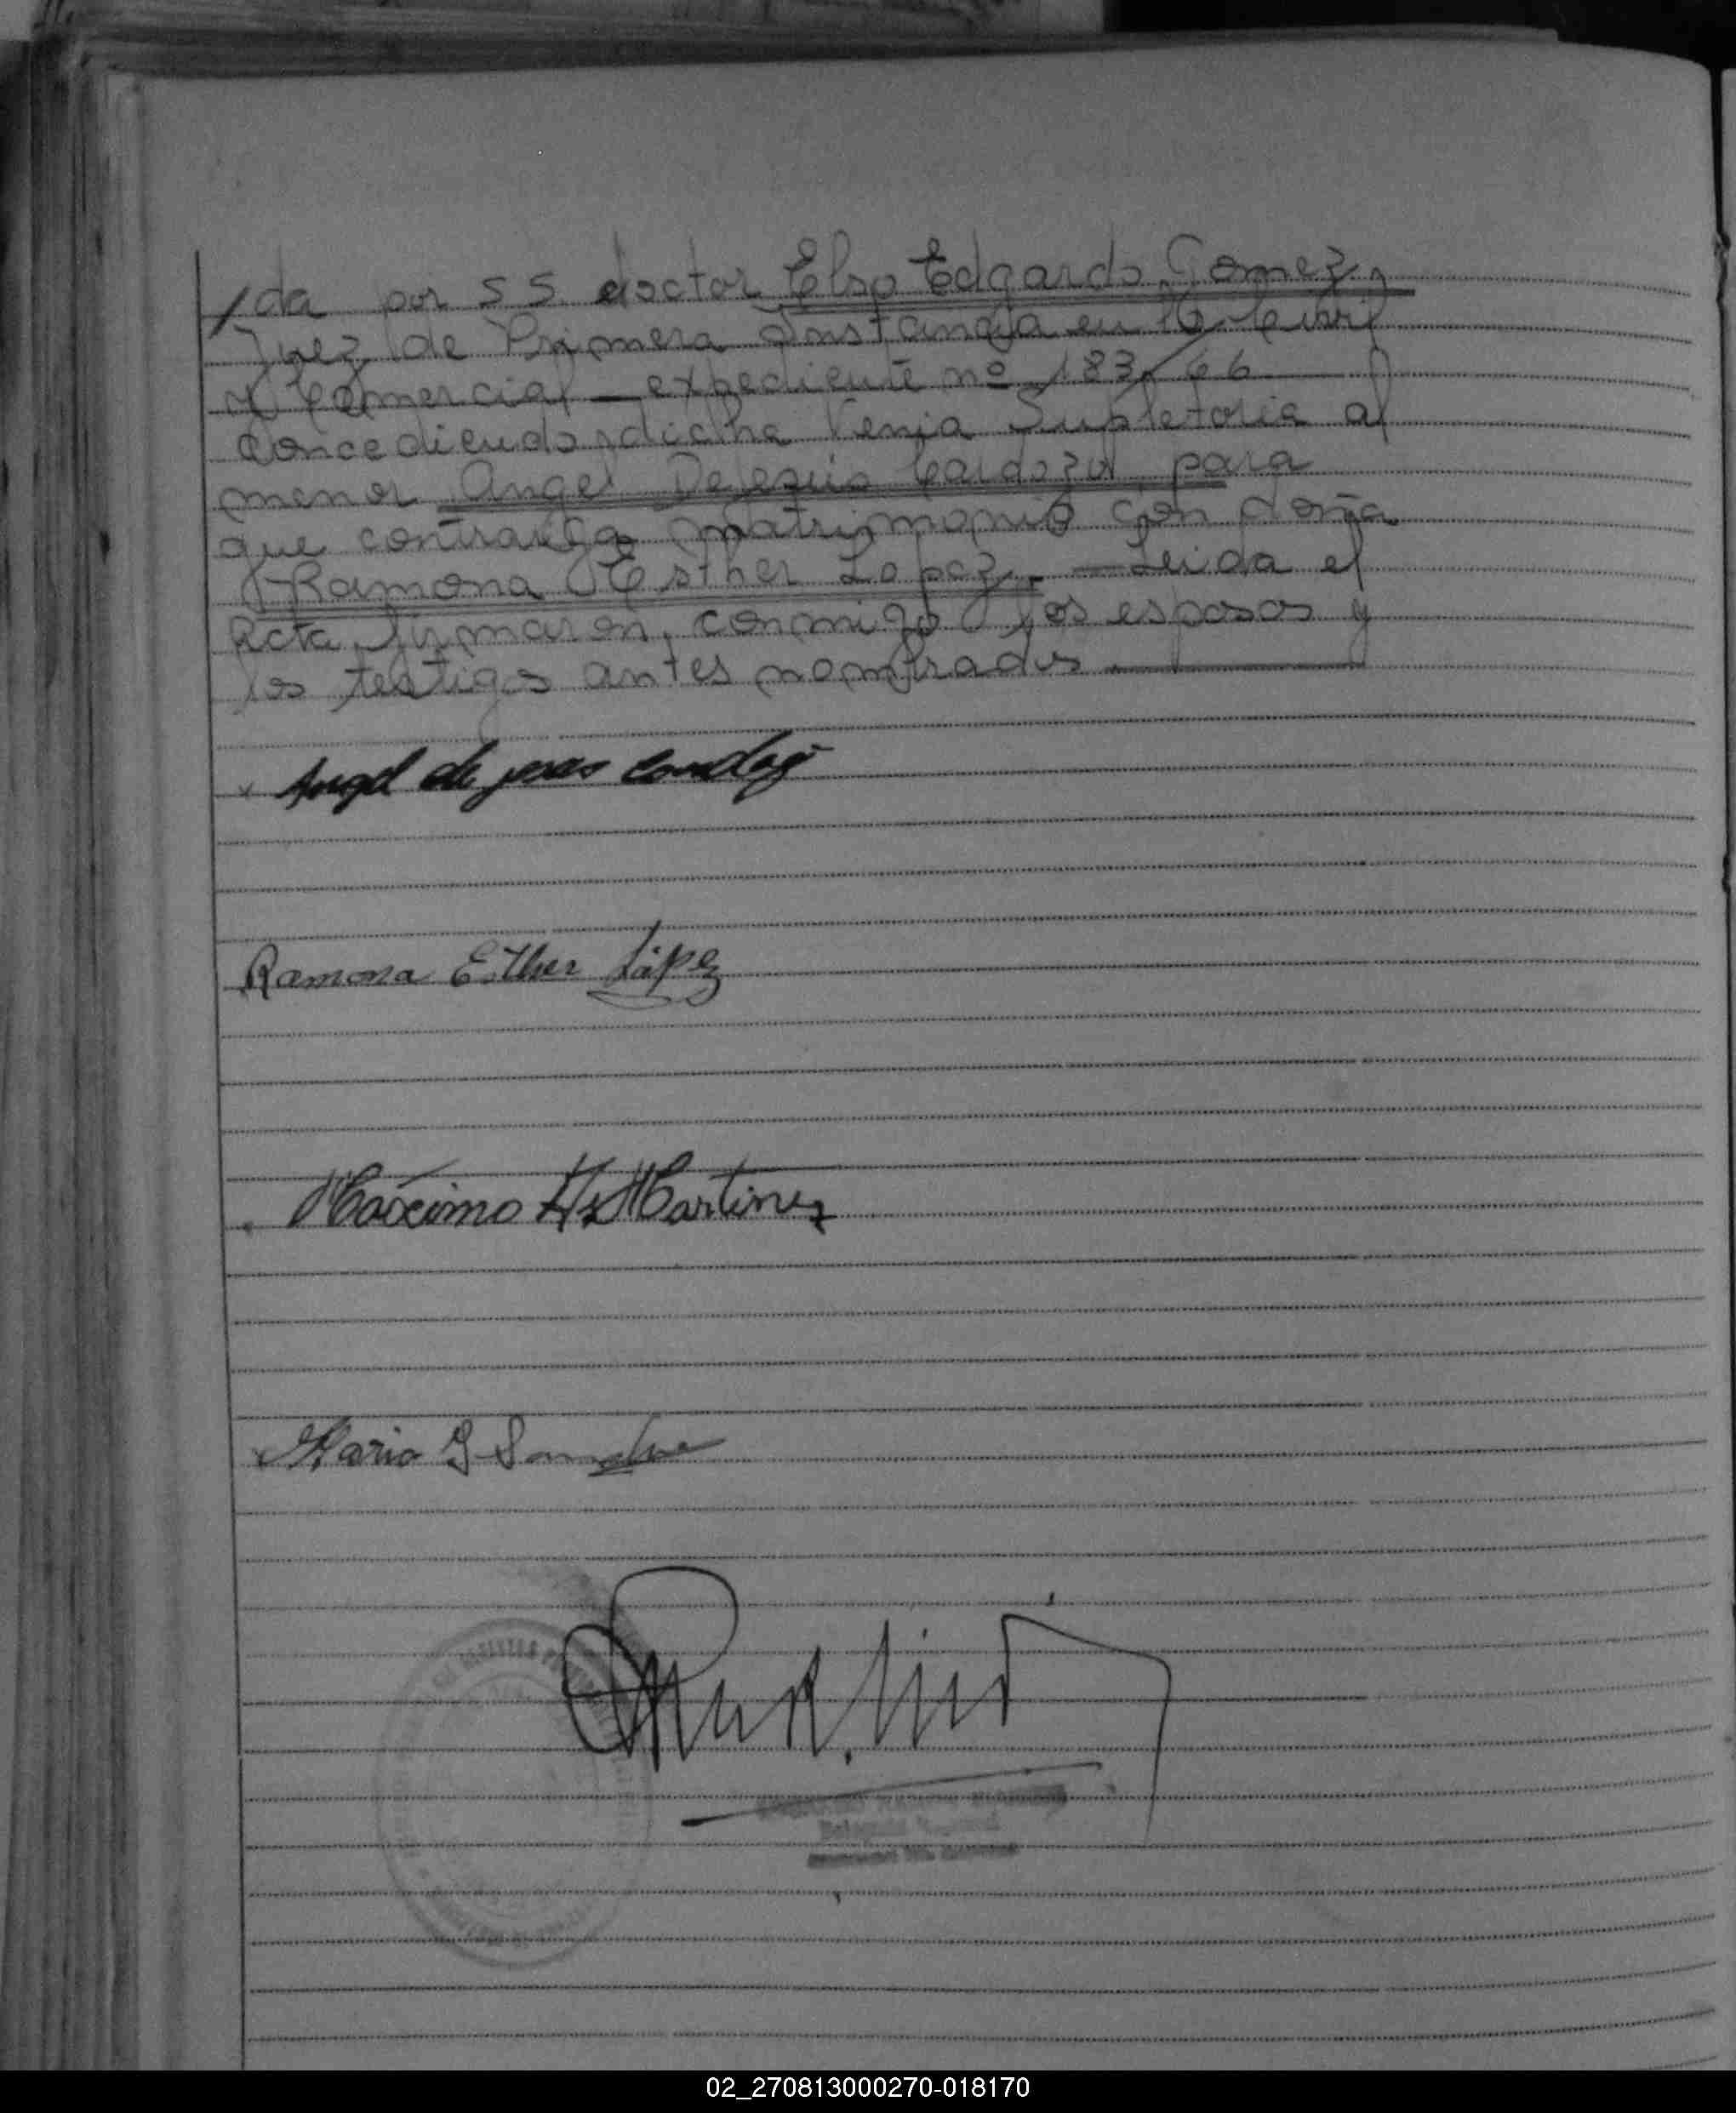 /da por S S. doctor Elso Edgardo Gomez,
Juez de Primera Instancia en lo Civil
y Comercial — expediente nº 183/66
Concediendo dicha Venia Supletoria al
menor Angel Dejesus Cardozo, para
que contraiga matrimonio con doña
Ramona Esther Lopez. — Leida el
Acta, firmaron, conmigo los esposos y
los testigos antes nombrados
Angel de jesus
Ramona Esther López
Máximo Martinez
Mario G
02_270813000270-018170